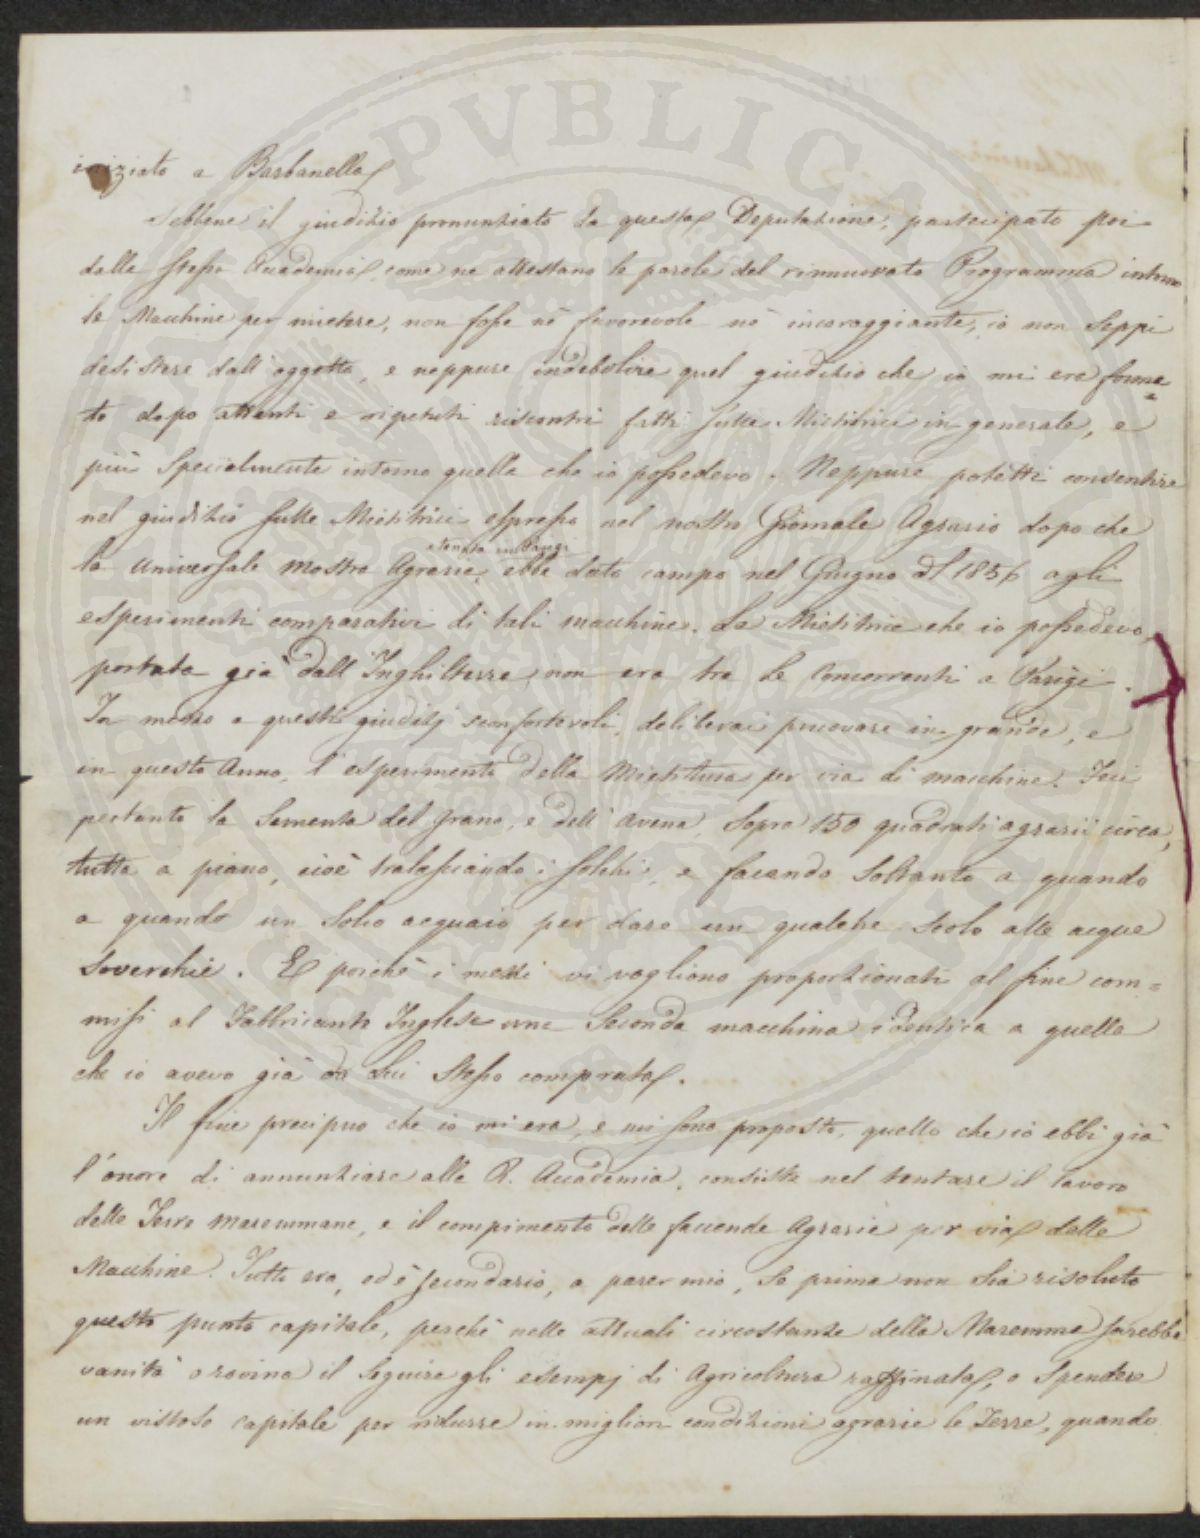 iniziato a Barbanella
Sebbene il giudizio pronunziato da questa Deputazione, partecipato poi
dalla stessa Accademia, come ne attestano le parole del rinnuovato Programma intorno
le Macchine per mietere, non fosse nè favorevole nè incoraggiante, io non seppi
desistere dall'oggetto, e neppure indebolire quel giudizio che io mi era forma=
to dopo attenti e ripetuti riscontri fatti sulle Mietitrici in generale, e
più specialmente intorno quella che io possedevo. Neppure potetti consentire
nel giudizio sulle Mietitrici espresso nel nostro Giornale Agrario dopo che
tenuta in Parigi
la universale mostra Agraria, ebbe dato campo nel Giugno del 1856 agli
esperimenti comparativi di tali macchine. La Mietitrice che io possedevo,
portata già dall'Inghilterra, non era tra le Concorrenti a Parigi.
In mezzo a questi giudizj sconfortevoli, deliberai pruovare in grande, e
in questo Anno, l'esperimento della Mietitura per via di macchine. Feci
pertanto la Sementa del grano, e dell'avena, sopra 150 quadrati agrarii circa,
tutta a piano, cioè tralasciando i solchi, e facendo soltanto a quando
a quando un solco acquaio per dare un qualche scolo alle acque
soverchie. E poichè i mezzi vi vogliono proporzionati al fine com=
misi al Fabbricante Inglese una seconda macchina identica a quella
che io avevo già da Lui stesso comprata.
Il fine precipuo che io mi era, e mi sono proposto, quello che io ebbi già
l'onore di annunziare alla R. Accademia, consiste nel tentare il lavoro
delle Terre maremmane, e il compimento delle faccende Agrarie per via delle
Macchine. Tutto era, ed è secondario, a parer mio, se prima non sia risoluto
questo punto capitale, perchè nelle attuali circostanze della Maremma sarebbe
vanità o rovina il seguire gli esempj di Agricoltura raffinata, o spendere
un vistoso capitale per ridurre in migliori condizioni agrarie le Terre, quando
PUBLICAE